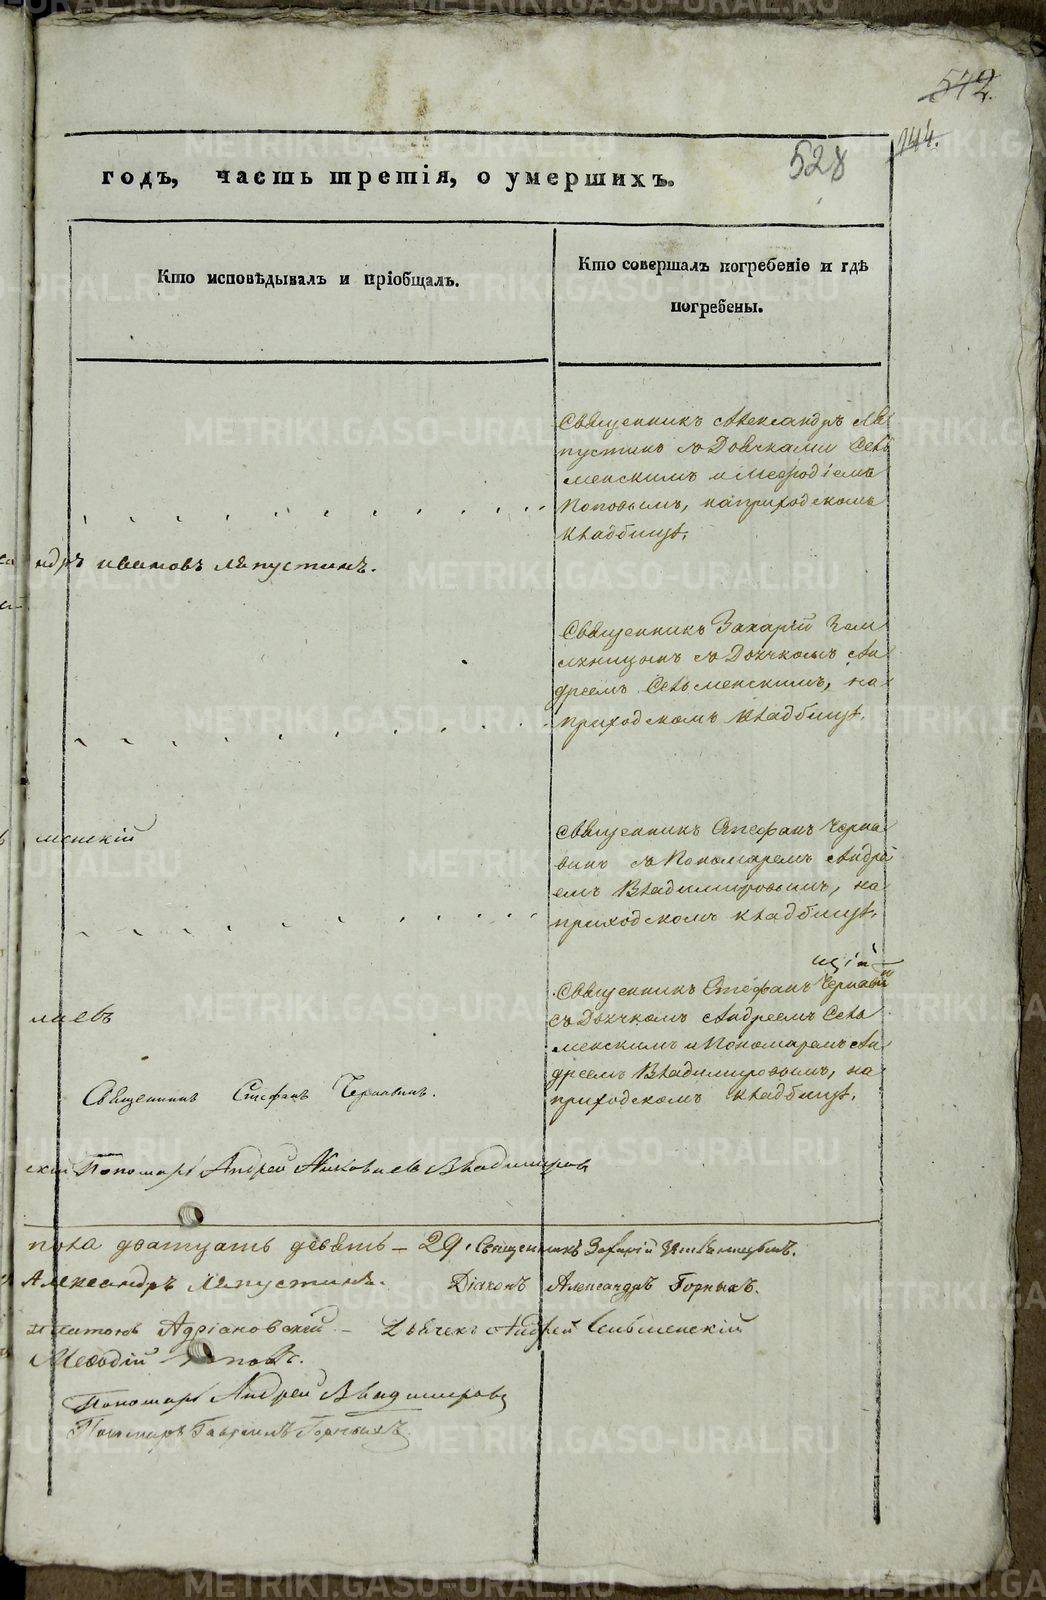 542.
144.
528
годъ, часть третія, о умершихъ.
Кто исповѣдывалъ и пріобщалъ.
Кто совершалъ погребеніе и гдѣ
погребены.
Священникъ Александръ Ля
пустинъ съ Дьячками Сель
менскимъ и Мефодіемъ
Поповымъ, на приходскомъ
кладбищѣ.
ндръ Ивановъ Ляпустинъ.
Священникъ Захарій
съ Дьячкомъ Ан
дреемъ Сельменскимъ, на
приходскомъ кладбищѣ.
менскій
Священникъ Стефанъ Черня
винъ съ Пономаремъ Андре
емъ Владимировымъ, на
приходскомъ кладбищѣ.
Священникъ Стефанъ Чернявин
съ Дьячкомъ Андреемъ Сель
менскимъ и Пономаремъ Ан
дреемъ Владимировымъ, на
приходскомъ кладбищѣ.
лаевъ
Священникъ Стефанъ Чернявинъ.
скій Пономарь Андрей Владимировъ
пола дватцать девять - 29. Священникъ Захарій
Александръ Ляпустинъ. Діаконъ Александръ Горныхъ.
Адріановскій - Дьячекъ Андрей Сельменскій
Меѳодій Поповъ.
Пономарь Андрей Владимировъ
Пономарь Гавріилъ Горныхъ
METRIKI.GASO-URAL.RU